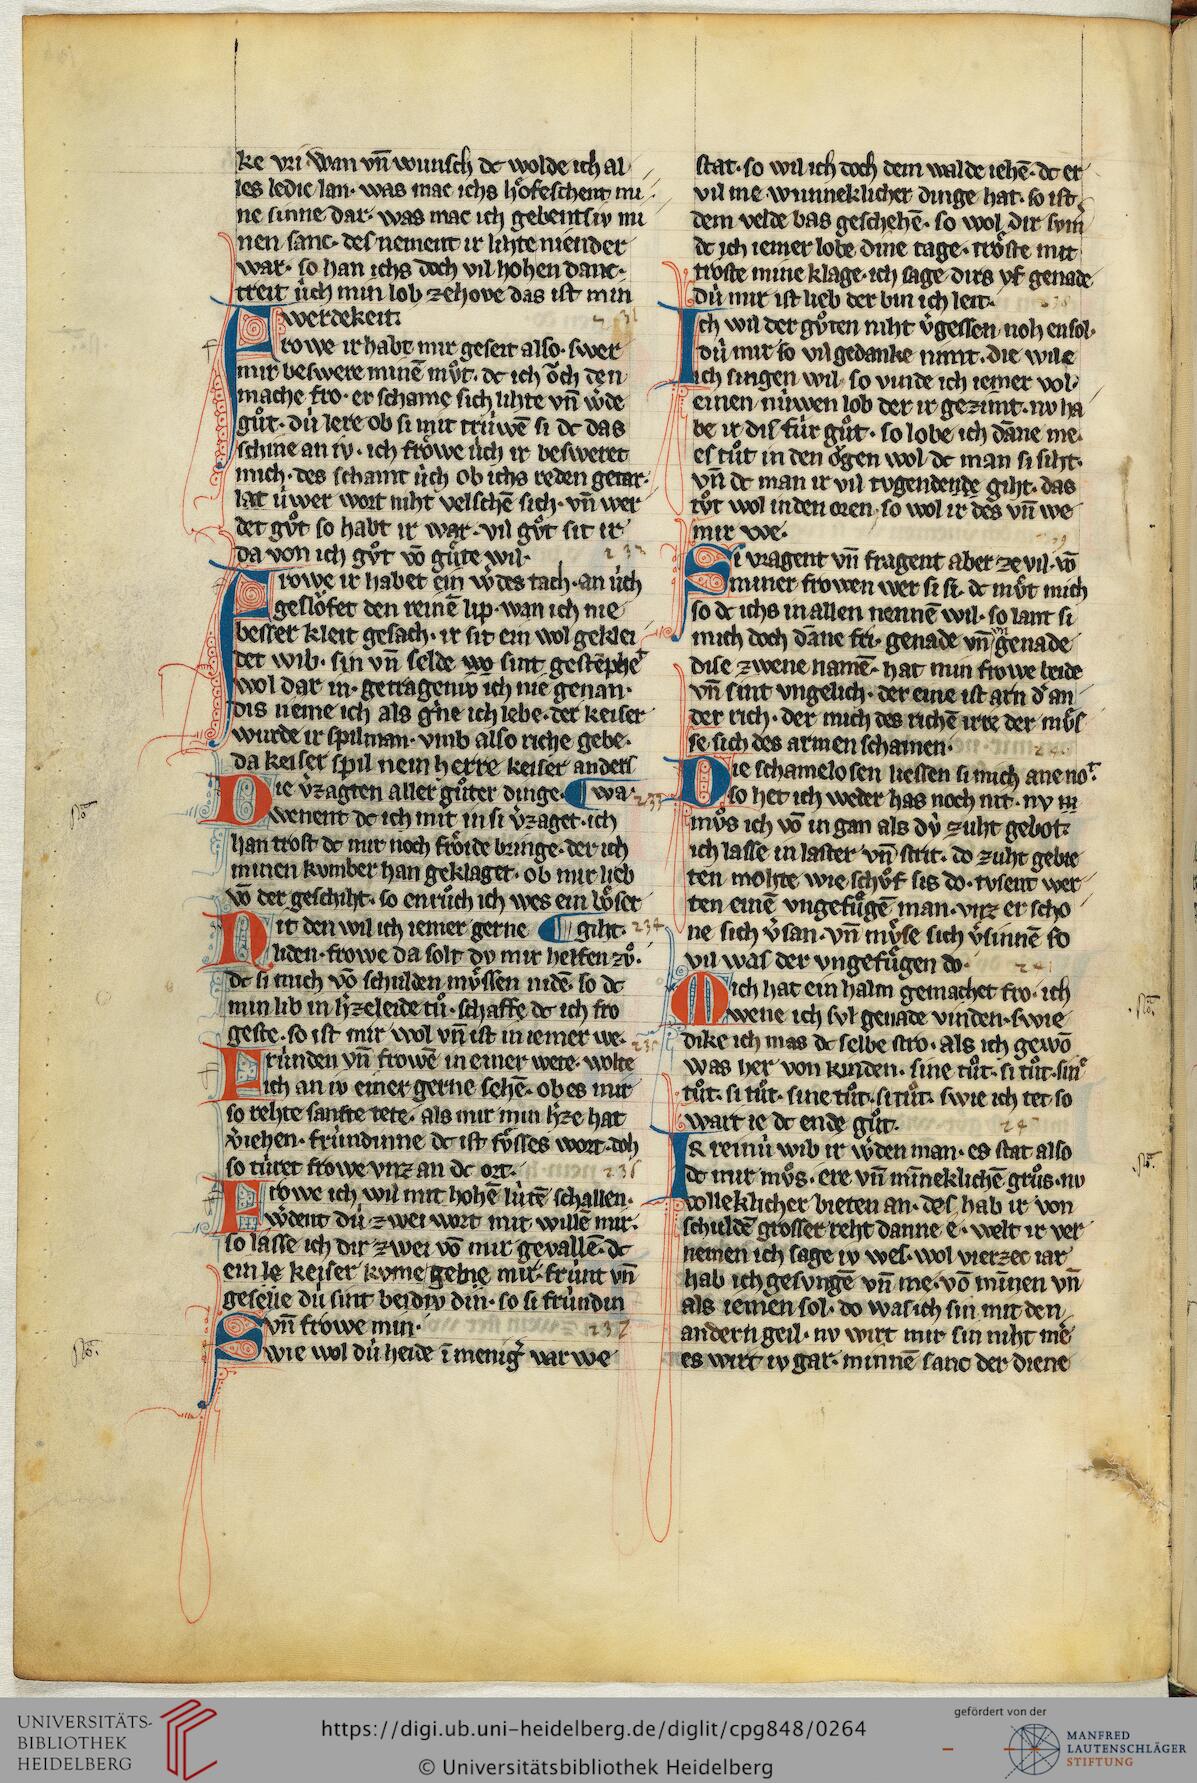 ke vri wan vn̄ wunsch dc wolde ich al
les ledic lan· was mac ichs hoͤfeschent mi
ne sinne dar· was mac ich gebent si iv mi
nen sanc· des nement ir lihte niender
war· so han ichs doch vil hohen danc·
treit úch min lob ze hove das ist min
werdekeit·
Frowe ir habt mir geseit also· swer
mir beswere minē mv̊t· dc ich oͮch den
mache fro· er schame sich lihte vn̄ w̓de
gůt· dú lere ob si mit trúwē si dc das
schine an iv· ich froͤwe úch ir besweret
mich· des schamt úch ob ichs reden getar·
lat úwer wort niht velschē sich· vn̄ wer
det gv̊t so habt ir war· vil gv̊t sit ir
da von ich gv̊t vō gůte wil·
Frowe ir habet ein w̓des tach· an úch
gesloͤfet den reinē lip· wan ich nie
besser kleit gesach· ir sit ein wol geklei
det wib· sin vn̄ selde wo sint gesteppheͭ
wol dar in· getrageniv ich nie genan·
dis neme ich als g̓ne ich lebe· der keiser
wurde ir spilman· vmb also riche gebe·
da keiser spil nein herre keiser anders
Die v̓zagten aller gůter dinge· wa·
wenent dc ich mit in si v̓zaget· ich
han trost dc mir noch froͤide bringe· der ich
minen kvmber han geklaget· ob mir lieb
vō der geschiht· so enrůch ich wes ein boͤser
Nit den wil ich iemer gerne giht·
liden· frowe da solt dv mir helfen zů·
dc si mich vō schulden mv̊ssen nidē· so dc
min lib in h̓zeleide tů· schaffe dc ich fro
geste· so ist mir wol vn̄ ist in iemer we·
Frúnden vn̄ frowē in einer wete· wolte
ich an iv einer gerne sehē· ob es mir
so rehte sanfte tete· als mir min h̓ze hat
v̓iehen· frúndinne dc ist sv̊sses wort· doh
so túret frowe vnz an dc ort·
Frowe ich wil mit hohē lútē schallen·
w̓dent dú zwei wort mit willē mir·
so lasse ich dir zwei vō mir gevallē· dc
ein ie keiser kvme gebie mit· frúnt vn̄
geselle dú sint beidiv din· so si frúndin
vn̄ frowe min·
Swie wol dú heide ī menig̓ varwe
stat· so wil ich doch dem walde iehē· dc er
vil me wunneklicher dinge hat· so ist
dem velde bas geschehē· so wol dir svm̄
dc ich iemer lobe dine tage· troͤste mit
troste mine klage· ich sage dirs vf genade
dú mir ist lieb der bin ich leit·
Ich wil der gůten niht v̓gessen noh ensol·
dú mir so vil gedanke nimt· die wile
ich singen wil so vinde ich iemer vol·
einen núwen lob der ir gezimt· nv ha
be ir dis fúr gůt· so lobe ich dāne me·
es tůt in den oͮgen wol dc man si siht·
vn̄ dc man ir vil tvgendende giht· das
tv̊t wol in den oren· so wol ir des vn̄ we
mir we·
Si vragent vn̄ fragent aber ze vil· vō
miner frowen wer si si· dc mv̊t mich
so dc ichs in allen nennē wil· so lant si
mich doch dāne fri· genade vn̄ vngenade
dise zwene namē· hat min frowe beide
vn̄ sint vngelich· der eine ist arn d̓ an
der rich· der mich des richē irre der mv̊s
se sich des armen schamen·
Die schamelosen liessen si mich ane noͭ
so het ich weder has noch nit· nv
mv̊s ich vō in gan als dv́ zuht gebot·
ich lasse in laster vn̄ strit· do zuht gebie
ten mohte wie schv̊f sis do· tvsent wer
ten einē vngefůgē man· vnz er scho
ne sich v̓san· vn̄ mv̊se sich v̓sinnē so
vil was der vngefůgen do·
Mich hat ein halm gemachet fro· ich
wene ich svl genade vinden· swie
dike ich mas dc selbe stro· als ich gewō
was her von kinden· sine tůt· si tůt· sinͤ
tůt· si tůt· sine tůt· si tůt· swie ich tet so
wart ie dc ende gůt·
Ir reinú wib ir w̓den man· es stat also
dc mir mv̊s· ere vn̄ mīneklichē grůs· nv
volleklicher bieten an· des hab ir von
schuldē grosser reht danne e· welt ir ver
nemen ich sage iv wes· wol vierzec iar
hab ich gesvngē vn̄ me· vō minnen vn̄
als iemen sol· do was ich sin mit den
andern geil· nv wirt mir sin niht me
es wirt iv gar· minnē sanc der diene
UNIVERSITÄTS-
BIBLIOTHEK
HEIDELBERG
https://digi.ub.uni-heidelberg.de/diglit/cpg848/0264
© Universitätsbibliothek Heidelberg
gefördert von der
MANFRED
LAUTENSCHLÄGER
STIFTUNG